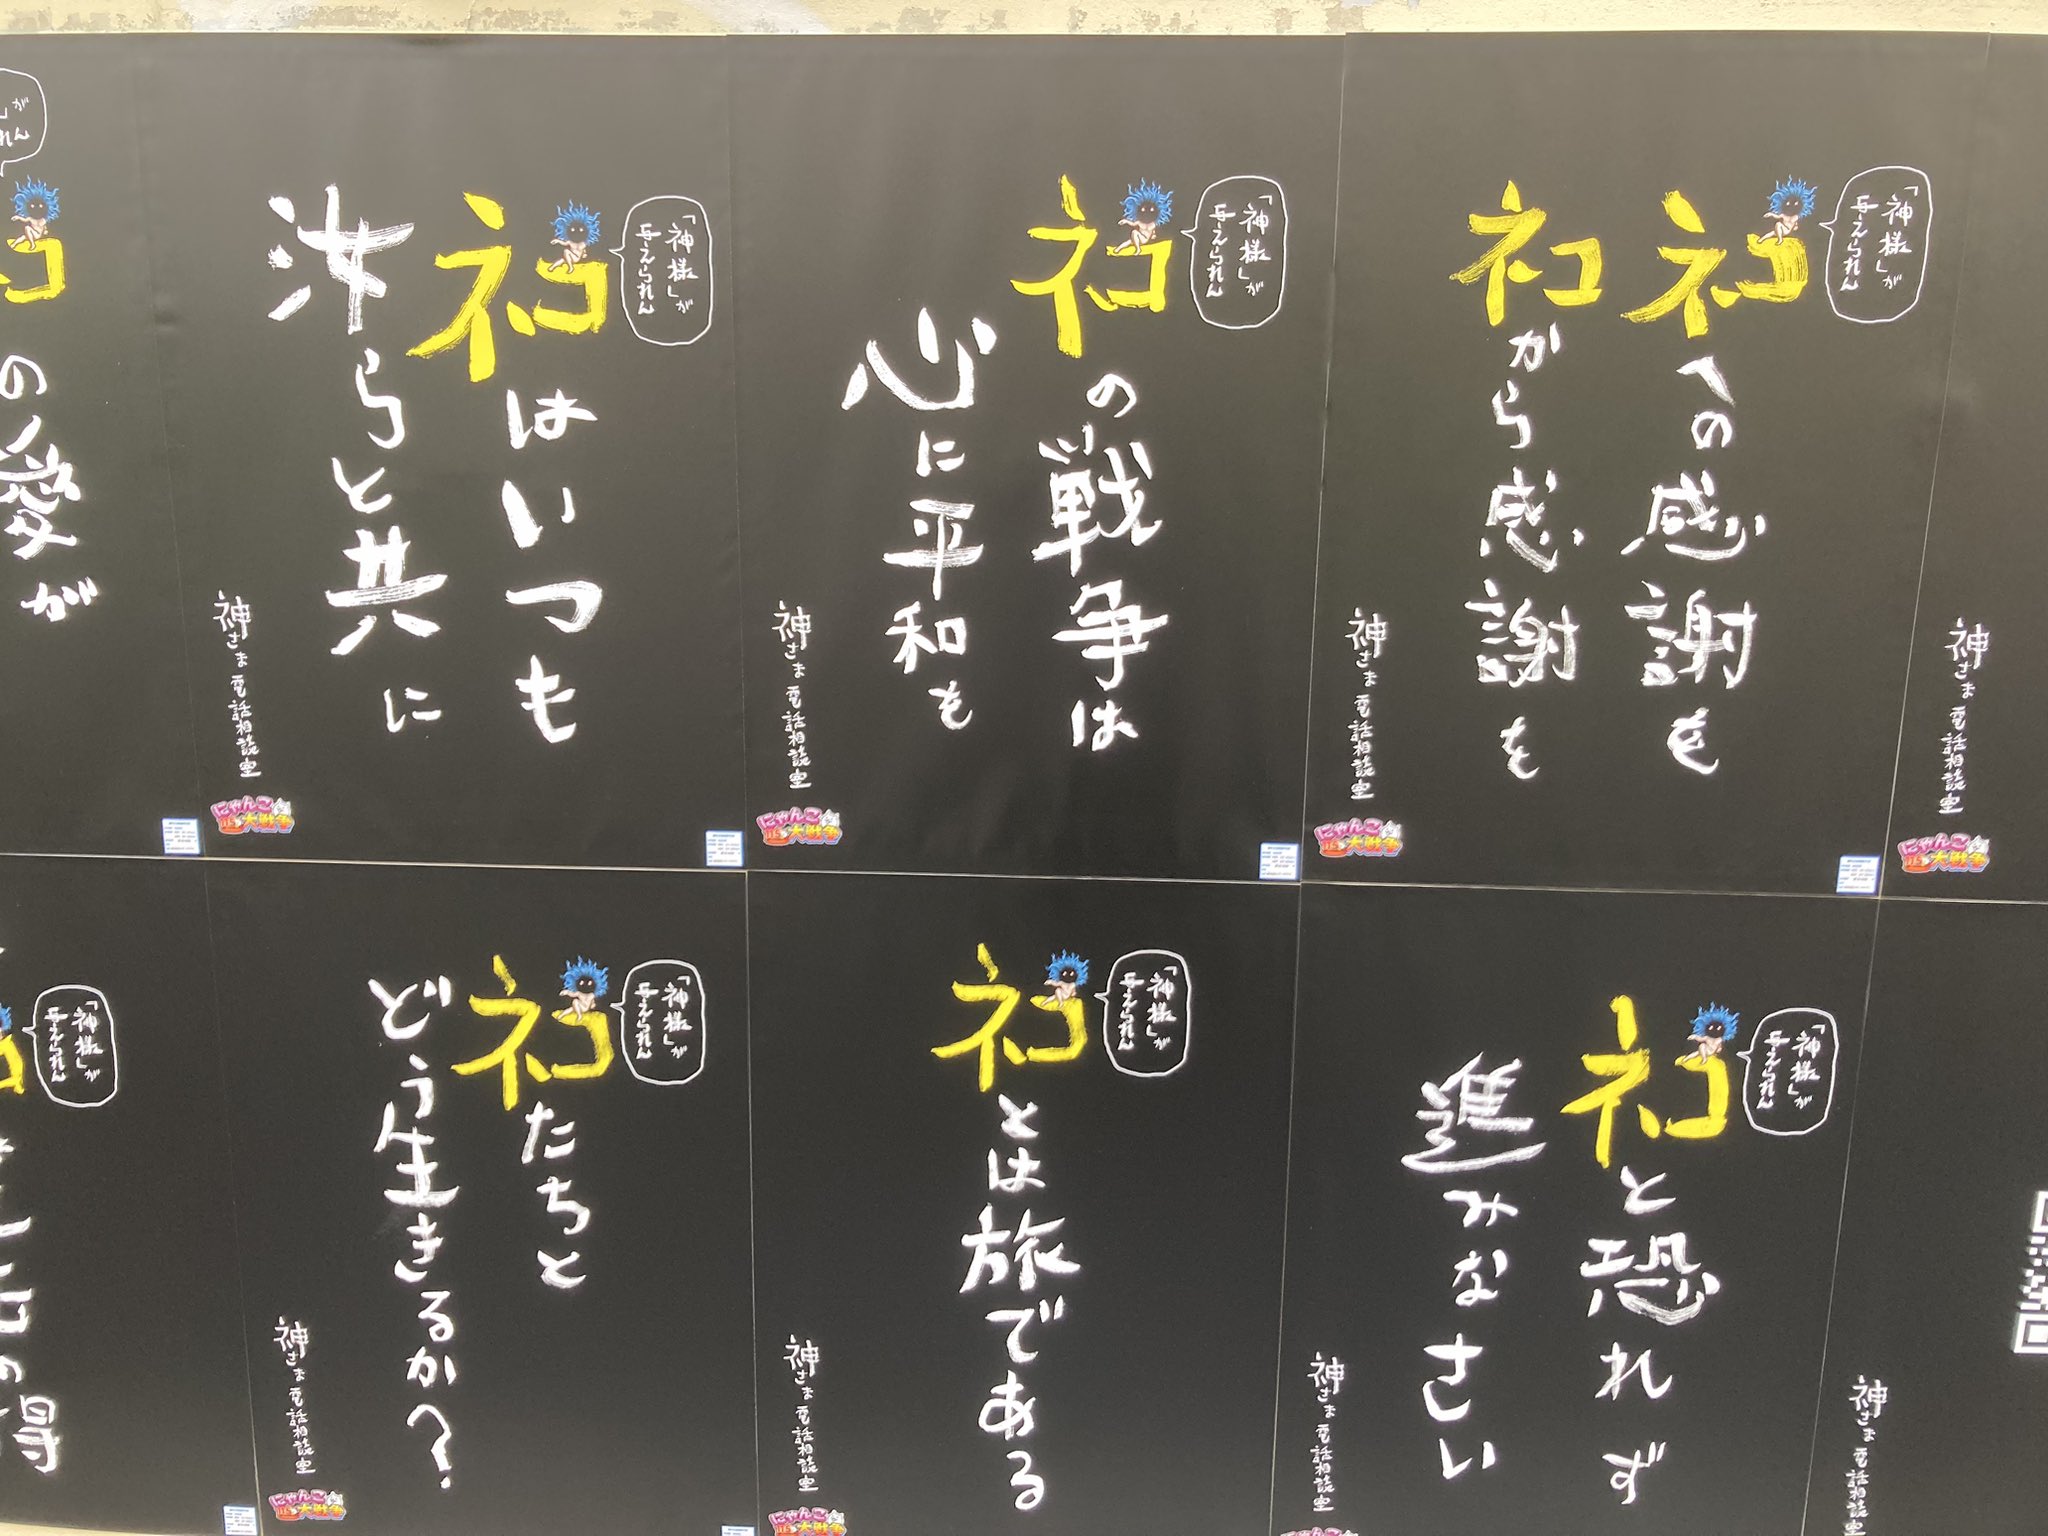 の愛が
「神様」が
与えられん
ネコはいつも
汝らと共に
神さま電話相談室
にゃんこ大戦争
「神様」が
与えられん
ネコの戦争は
心に平和を
神さま電話相談室
にゃんこ大戦争
「神様」が
与えられん
ネコへの感謝を
ネコから感謝を
神さま電話相談室
にゃんこ大戦争
神さま電話相談室
にゃんこ大戦争
「神様」が
与えられん
得
「神様」が
与えられん
ネコたちと
どう生きるか?
神さま電話相談室
にゃんこ大戦争
「神様」が
与えられん
ネコとは旅である
神さま電話相談室
にゃんこ大戦争
「神様」が
与えられん
ネコと恐れず
進みなさい
神さま電話相談室
神さま電話相談室